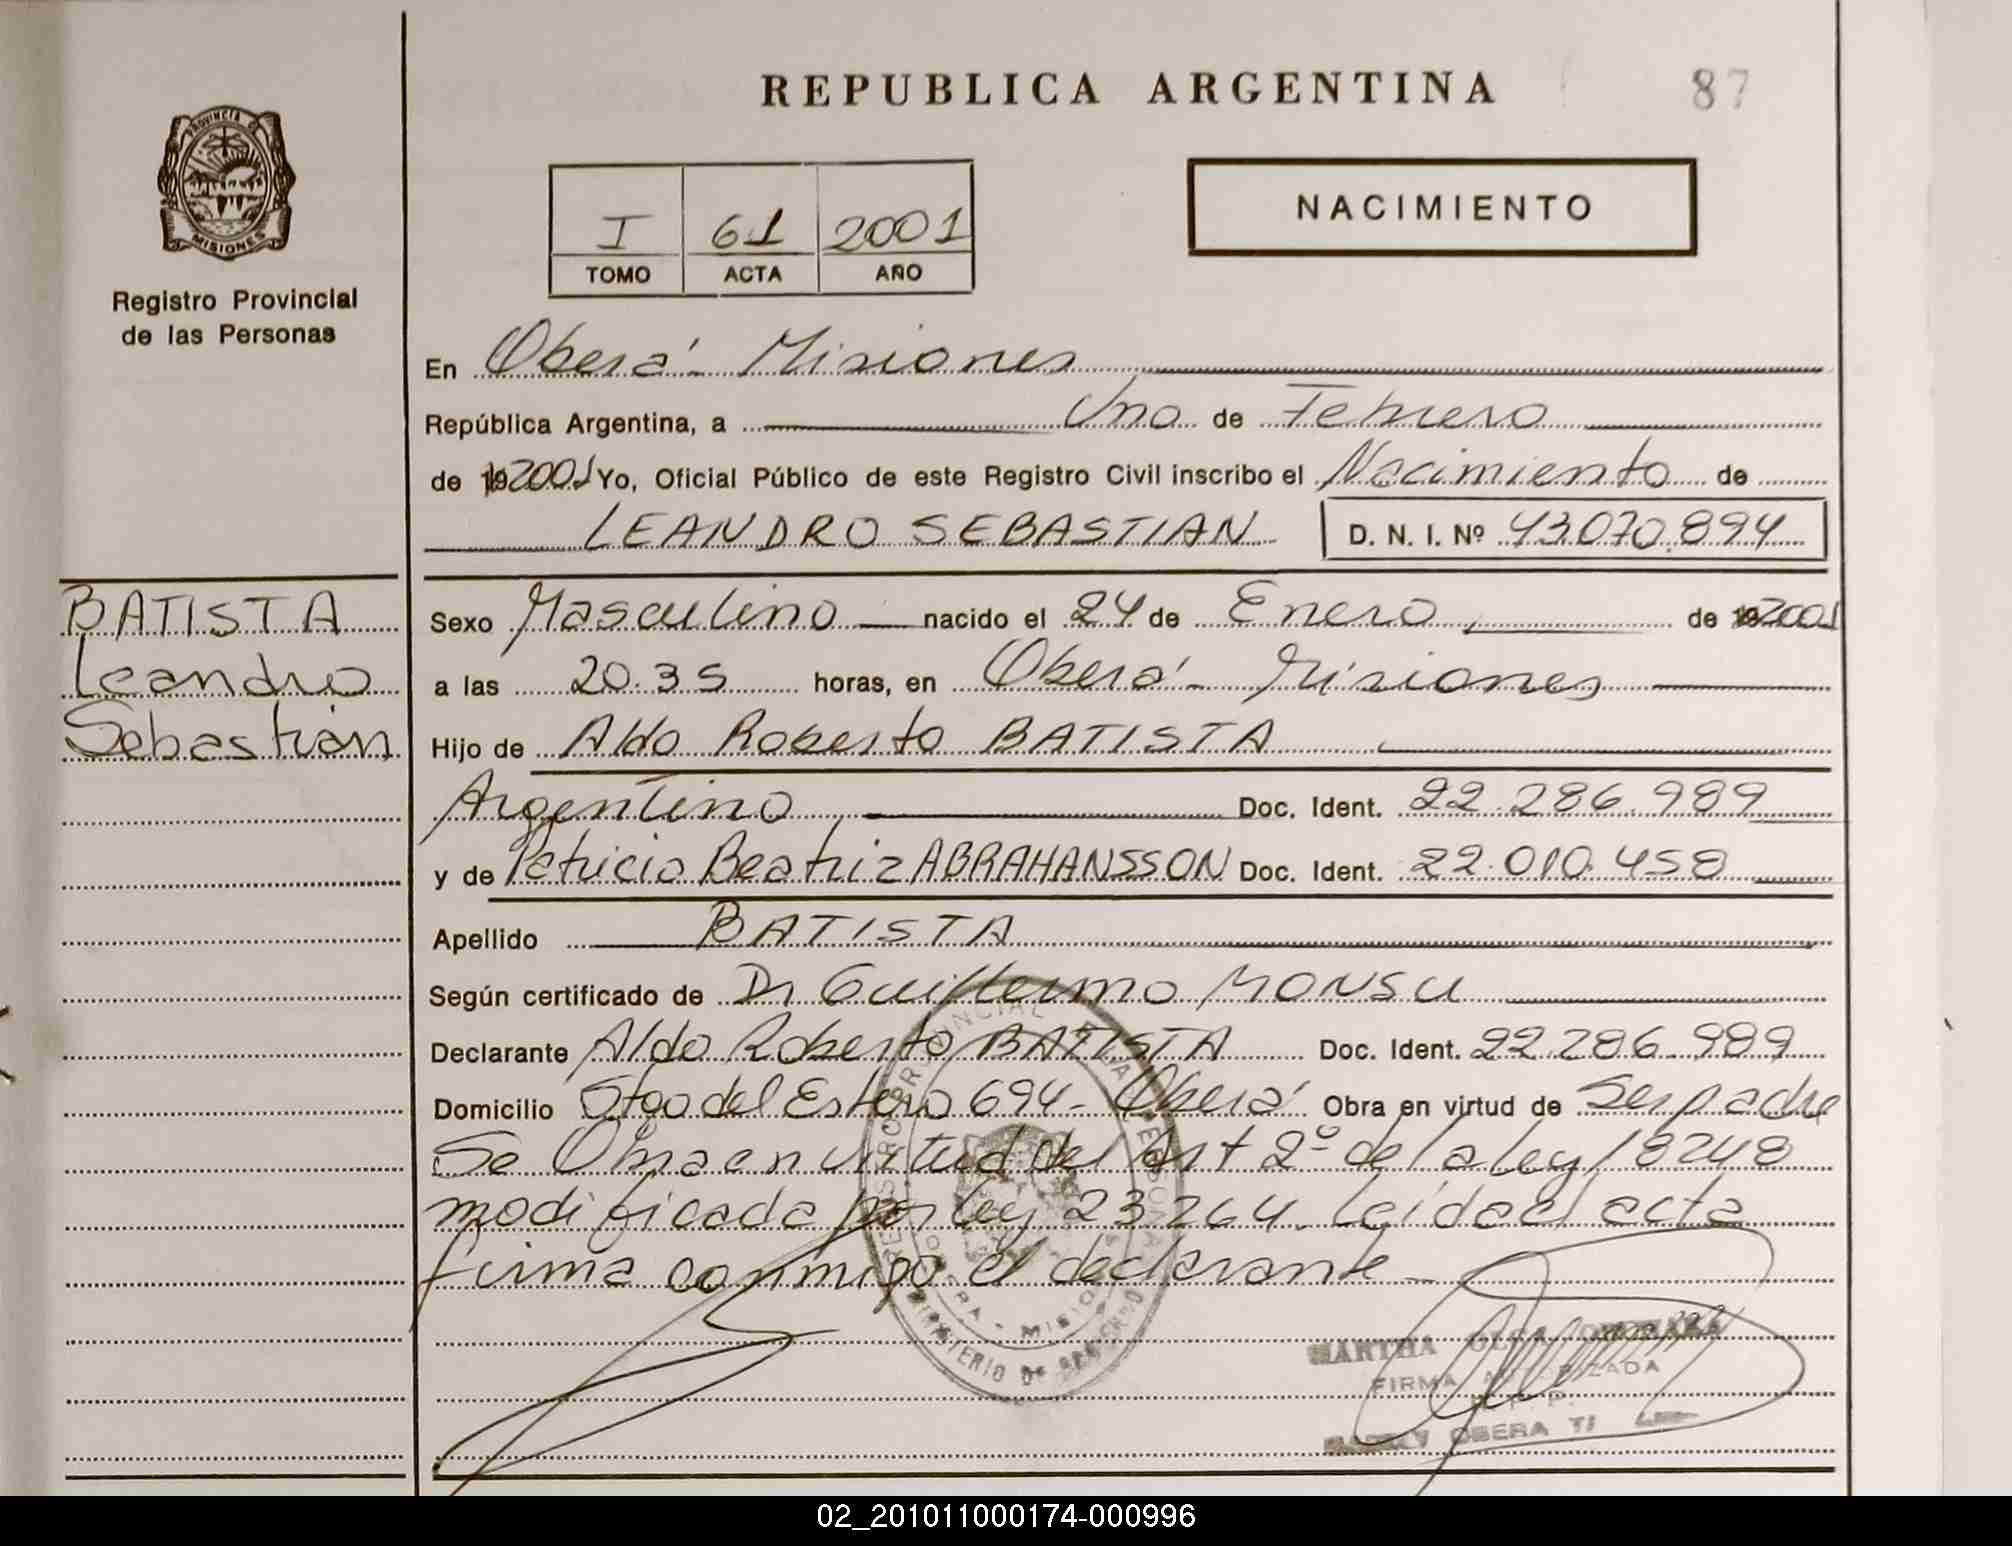 REPUBLICA ARGENTINA
87
PROVINCIA DE
MISIONES
Registro Provincial
de las Personas
I 61 2001
TOMO ACTA AÑO
NACIMIENTO
En Oberá - Misiones
República Argentina, a Uno de Febrero
de 19 2001 Yo, Oficial Público de este Registro Civil inscribo el Nacimiento de
LEANDRO SEBASTIAN D. N. I. Nº 43.070.894
BATISTA
Leandro
Sebastián
Sexo Masculino nacido el 24 de Enero de 19 2001
a las 20.35 horas, en Oberá - Misiones
Hijo de Aldo Roberto BATISTA
Argentino Doc. Ident. 22.286.989
y de Patricia Beatriz ABRAHANSSON Doc. Ident. 22.010.458
Apellido BATISTA
Según certificado de Dr Guillermo MONSU
Declarante Aldo Roberto BATISTA Doc. Ident. 22.286.989
Domicilio Stgo del Estero 694 - Oberá Obra en virtud de Ser padre
Se Obra en virtud del Art 2º de la ley 18248
modificada por ley 23.264. Leída el acta
firma conmigo el declarante -
REGISTRO PROVINCIAL DE LAS PERSONAS
OBERA - MISIONES
MINISTERIO DE GOBIERNO
MARTHA OLGA
FIRMA AUTORIZADA
R. P. P.
OBERA
02_201011000174-000996